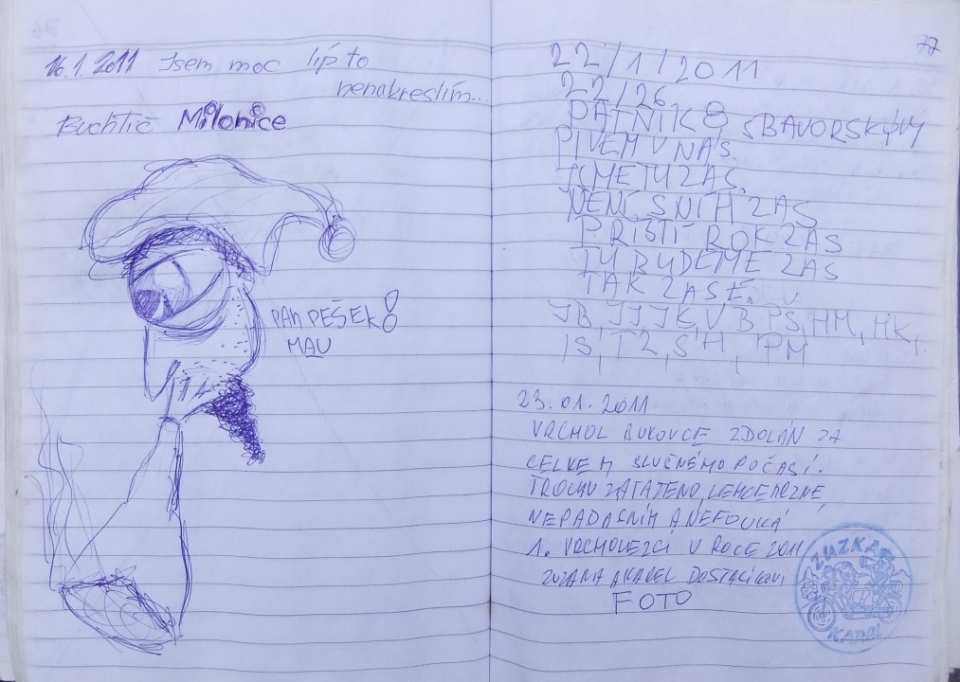 16.1.2011 Jsem moc líp to
nenakreslím...
Buchtič Milonice
PAN PEŠEK!
MAU
77
22/1/2011
22/26
PATNÍK 8 S BAVORSKÝM
PIVEM V NÁS.
JSME TU ZAS.
NENÍ SNÍH ZAS
PŘÍŠTÍ ROK ZAS
TU BUDEME ZAS
TAK ZASE.
JB, JJ, JK, V B, PS, HM, MK,
IS, TZ, SH, PM
23.01.2011
VRCHOL BUKOVCE ZDOLÁN ZA
CELKEM SLUČNÉHO POČASÍ.
TROCHU ZATAŽENO, LEHCE MRZNE,
NEPADÁ SNÍH A NEFOUKÁ
1. VRCHOLEZCI V ROCE 2011
ZUZANA A KAREL DOSTALÍKOVI
FOTO
ZUZKA &
KAREL